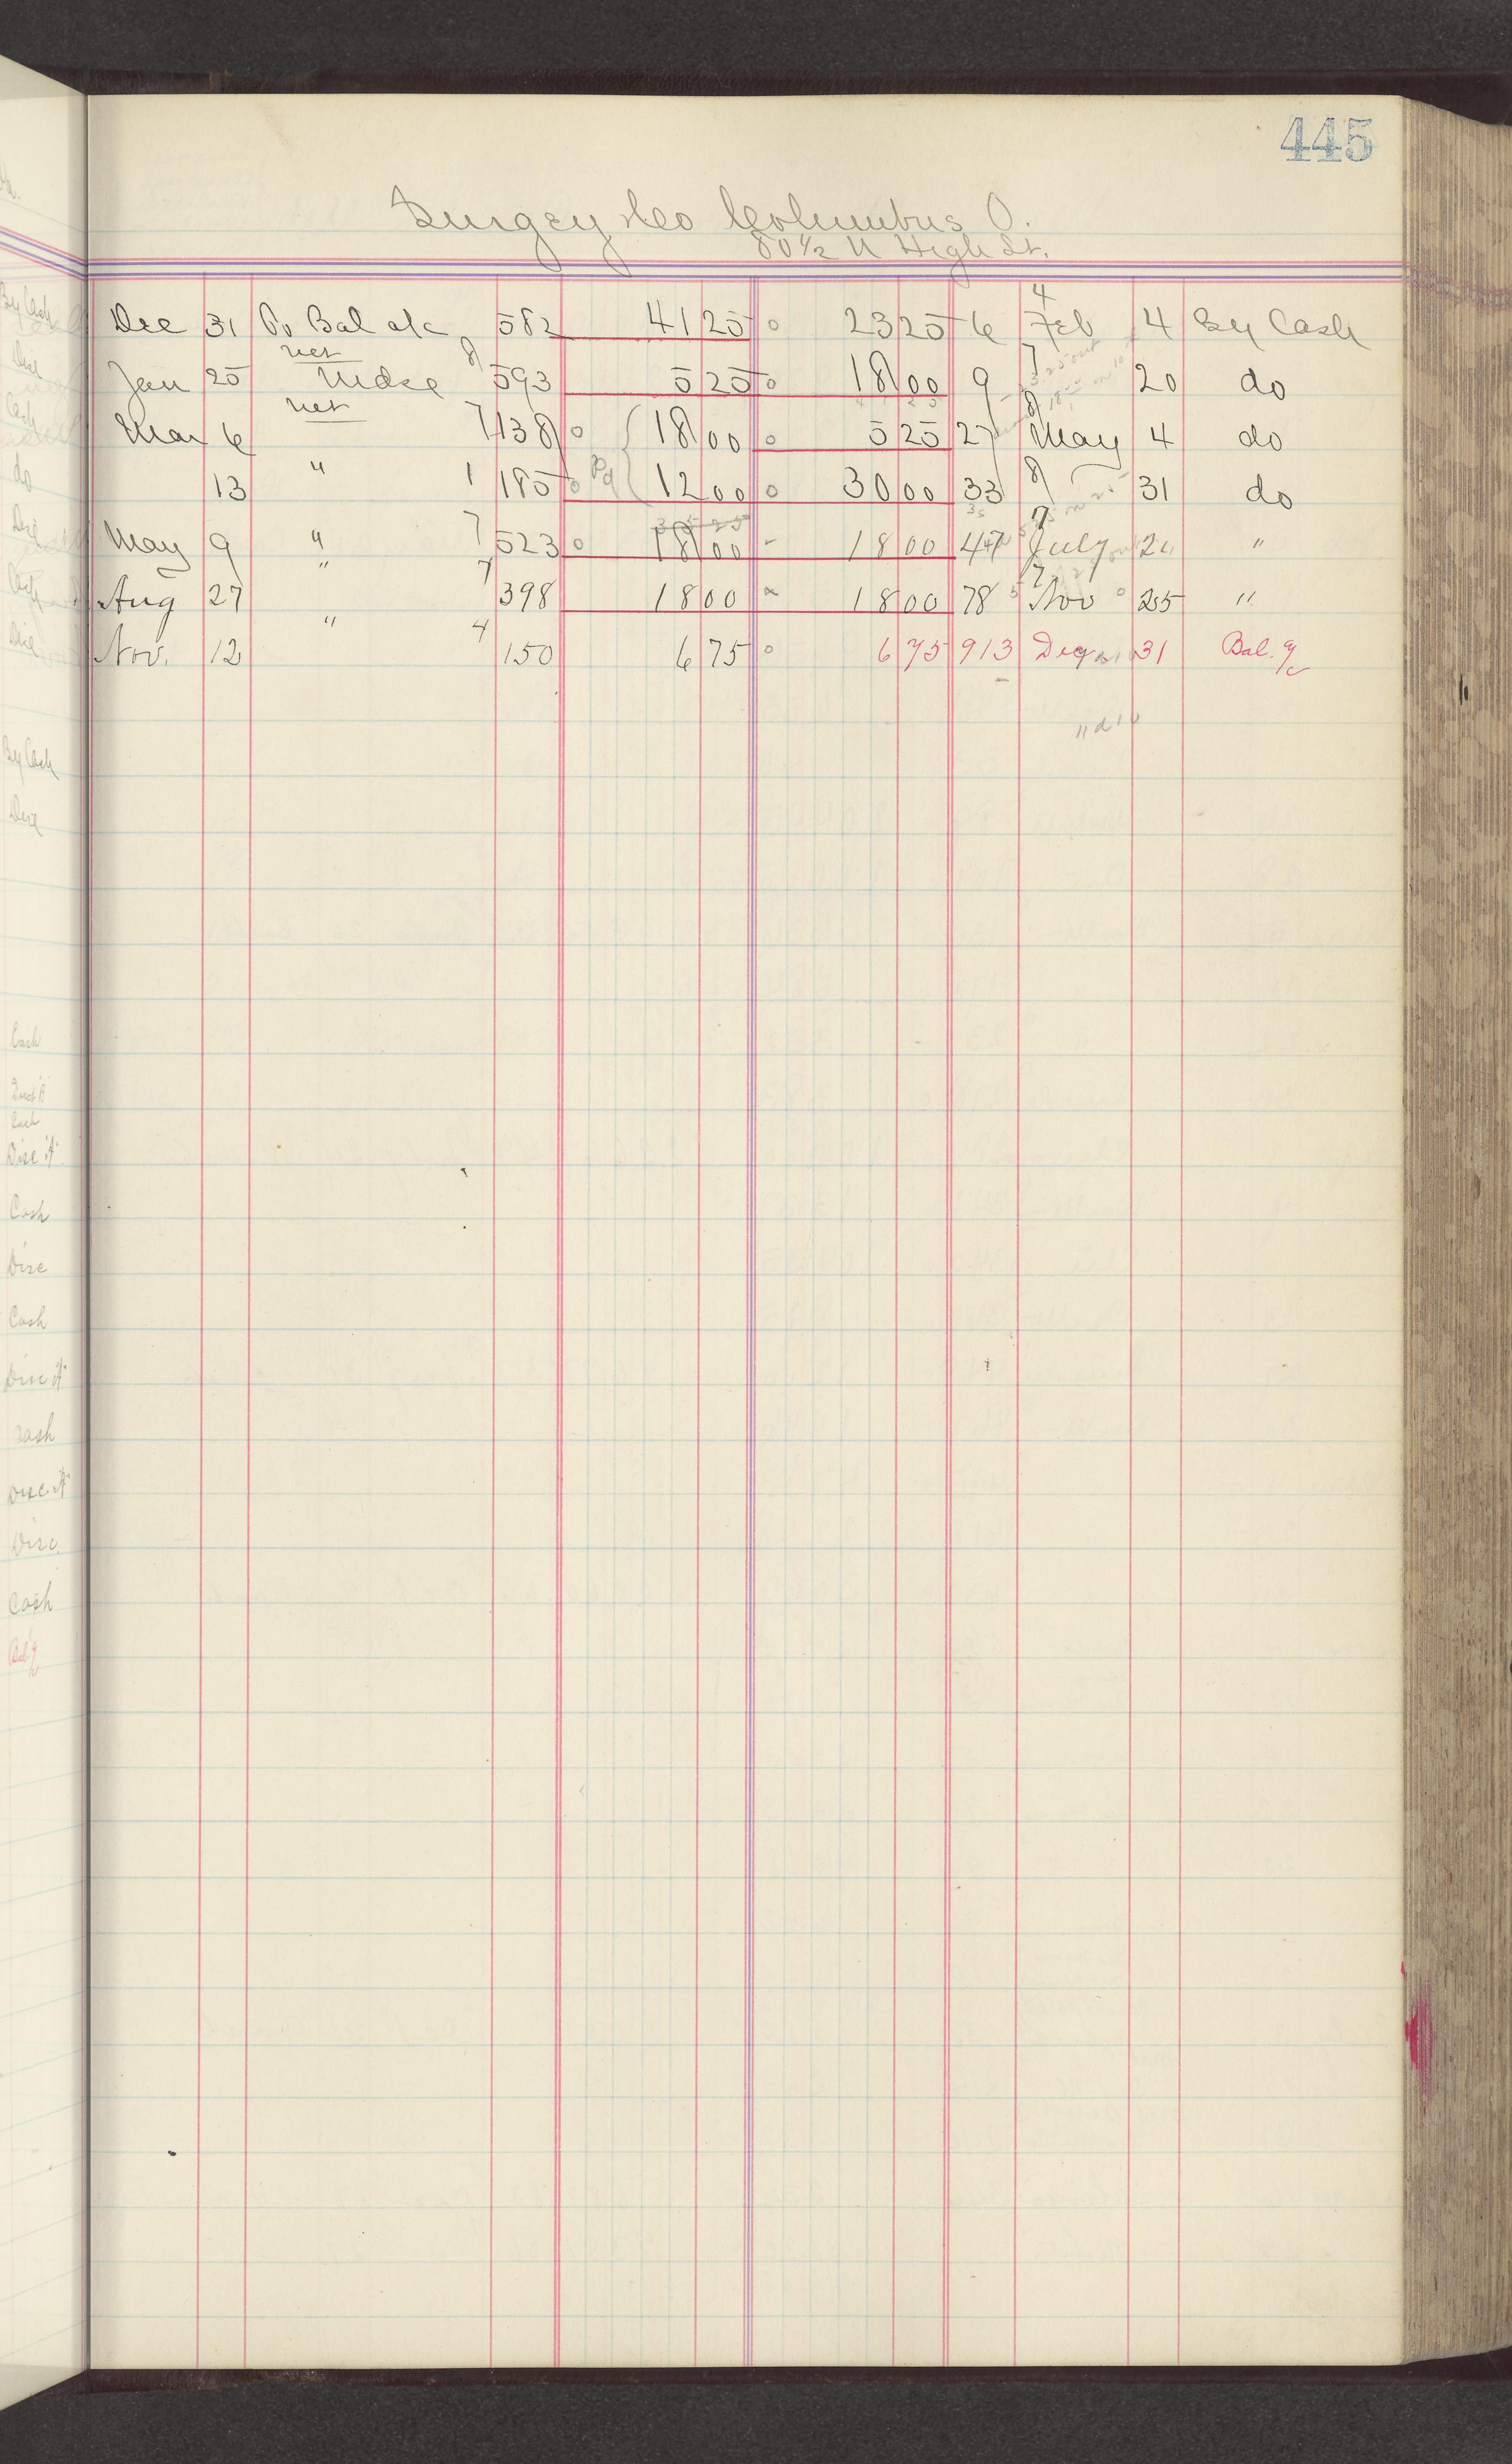 445
Columbus O.
80 1/2 N High St.
Dec 31 To Bal a/c 582 41 25 o 23 25 6 4 Feb 4 By Cash
Jan 25 net Mdse 8 593 5 25 o 18 00 9 7 20 do
Mar 6 net 7 138 o 18 00 o 5 25 27 8 May 4 do
13 " 1 185 o Pd 12 00 o 30 00 33 8 31 do
35 25
May 9 " 7 523 o 18 00 - 18 00 47 7 July 2 "
Aug 27 " 7 398 18 00 18 00 78 7 Nov 25 "
Nov. 12 " 4 150 6 75 o 6 75 913 Dec 31 Bal. a/c
By Cash
Disc
Cash
do
Disc
Cash
Disc
By Cash
Disc
Cash
Cash
Disc "A"
Cash
Disc
Cash
Disc "A"
Cash
Disc "A"
Disc.
Cash
Bal a/c